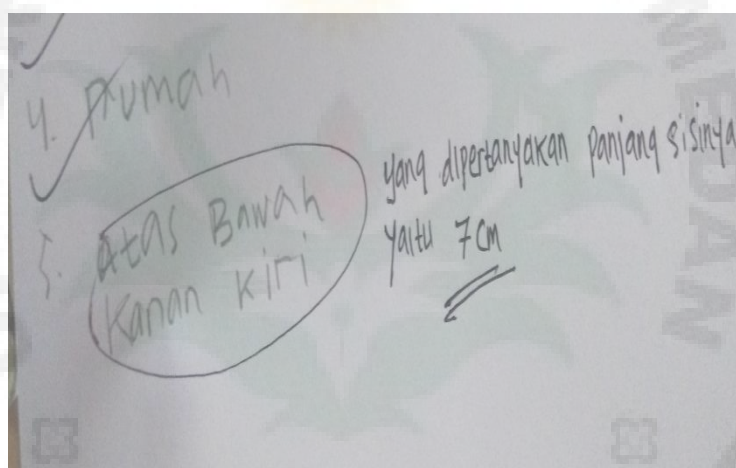 4. Rumah
5. Atas Bawah
Kanan Kiri
yang dipertanyakan panjang sisinya
yaitu 7 cm
MEDAN